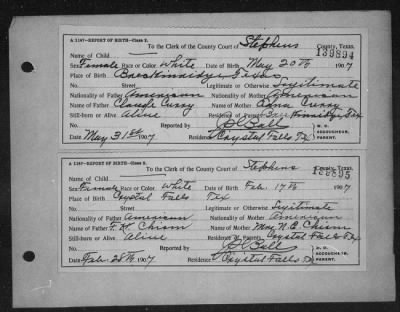 A 1167—REPORT OF BIRTH—Class 2.
To the Clerk of the County Court of Stephens County, Texas.
Name of Child 139894
Sex Female Race or Color White Date of Birth May 20th 1907
Place of Birth Breckinridge Texas
Street Legitimate or Otherwise Legitimate
Nationality of Father American Nationality of Mother American
Name of Father Claude Curry Name of Mother Edna Curry
Still-born or Alive Alive Residence of Parents
Reported by
Date May 31st 1907 Residence Crystal Falls Tex
M. D. ACCOUCHEUR, PARENT.
A 1167—REPORT OF BIRTH—Class 2.
To the Clerk of the County Court of Stephens County, Texas.
Name of Child
Sex Female Race or Color White Date of Birth Feb 17th 1907
Place of Birth Crystal Falls Tex
Street Legitimate or Otherwise Legitimate
Nationality of Father American Nationality of Mother American
Name of Father Chism Name of Mother Chism
Still-born or Alive Alive Crystal Falls Tex
Reported by
Date Feb 28th 1907 Residence Crystal Falls Tex
M. D. ACCOUCHEUR, PARENT.